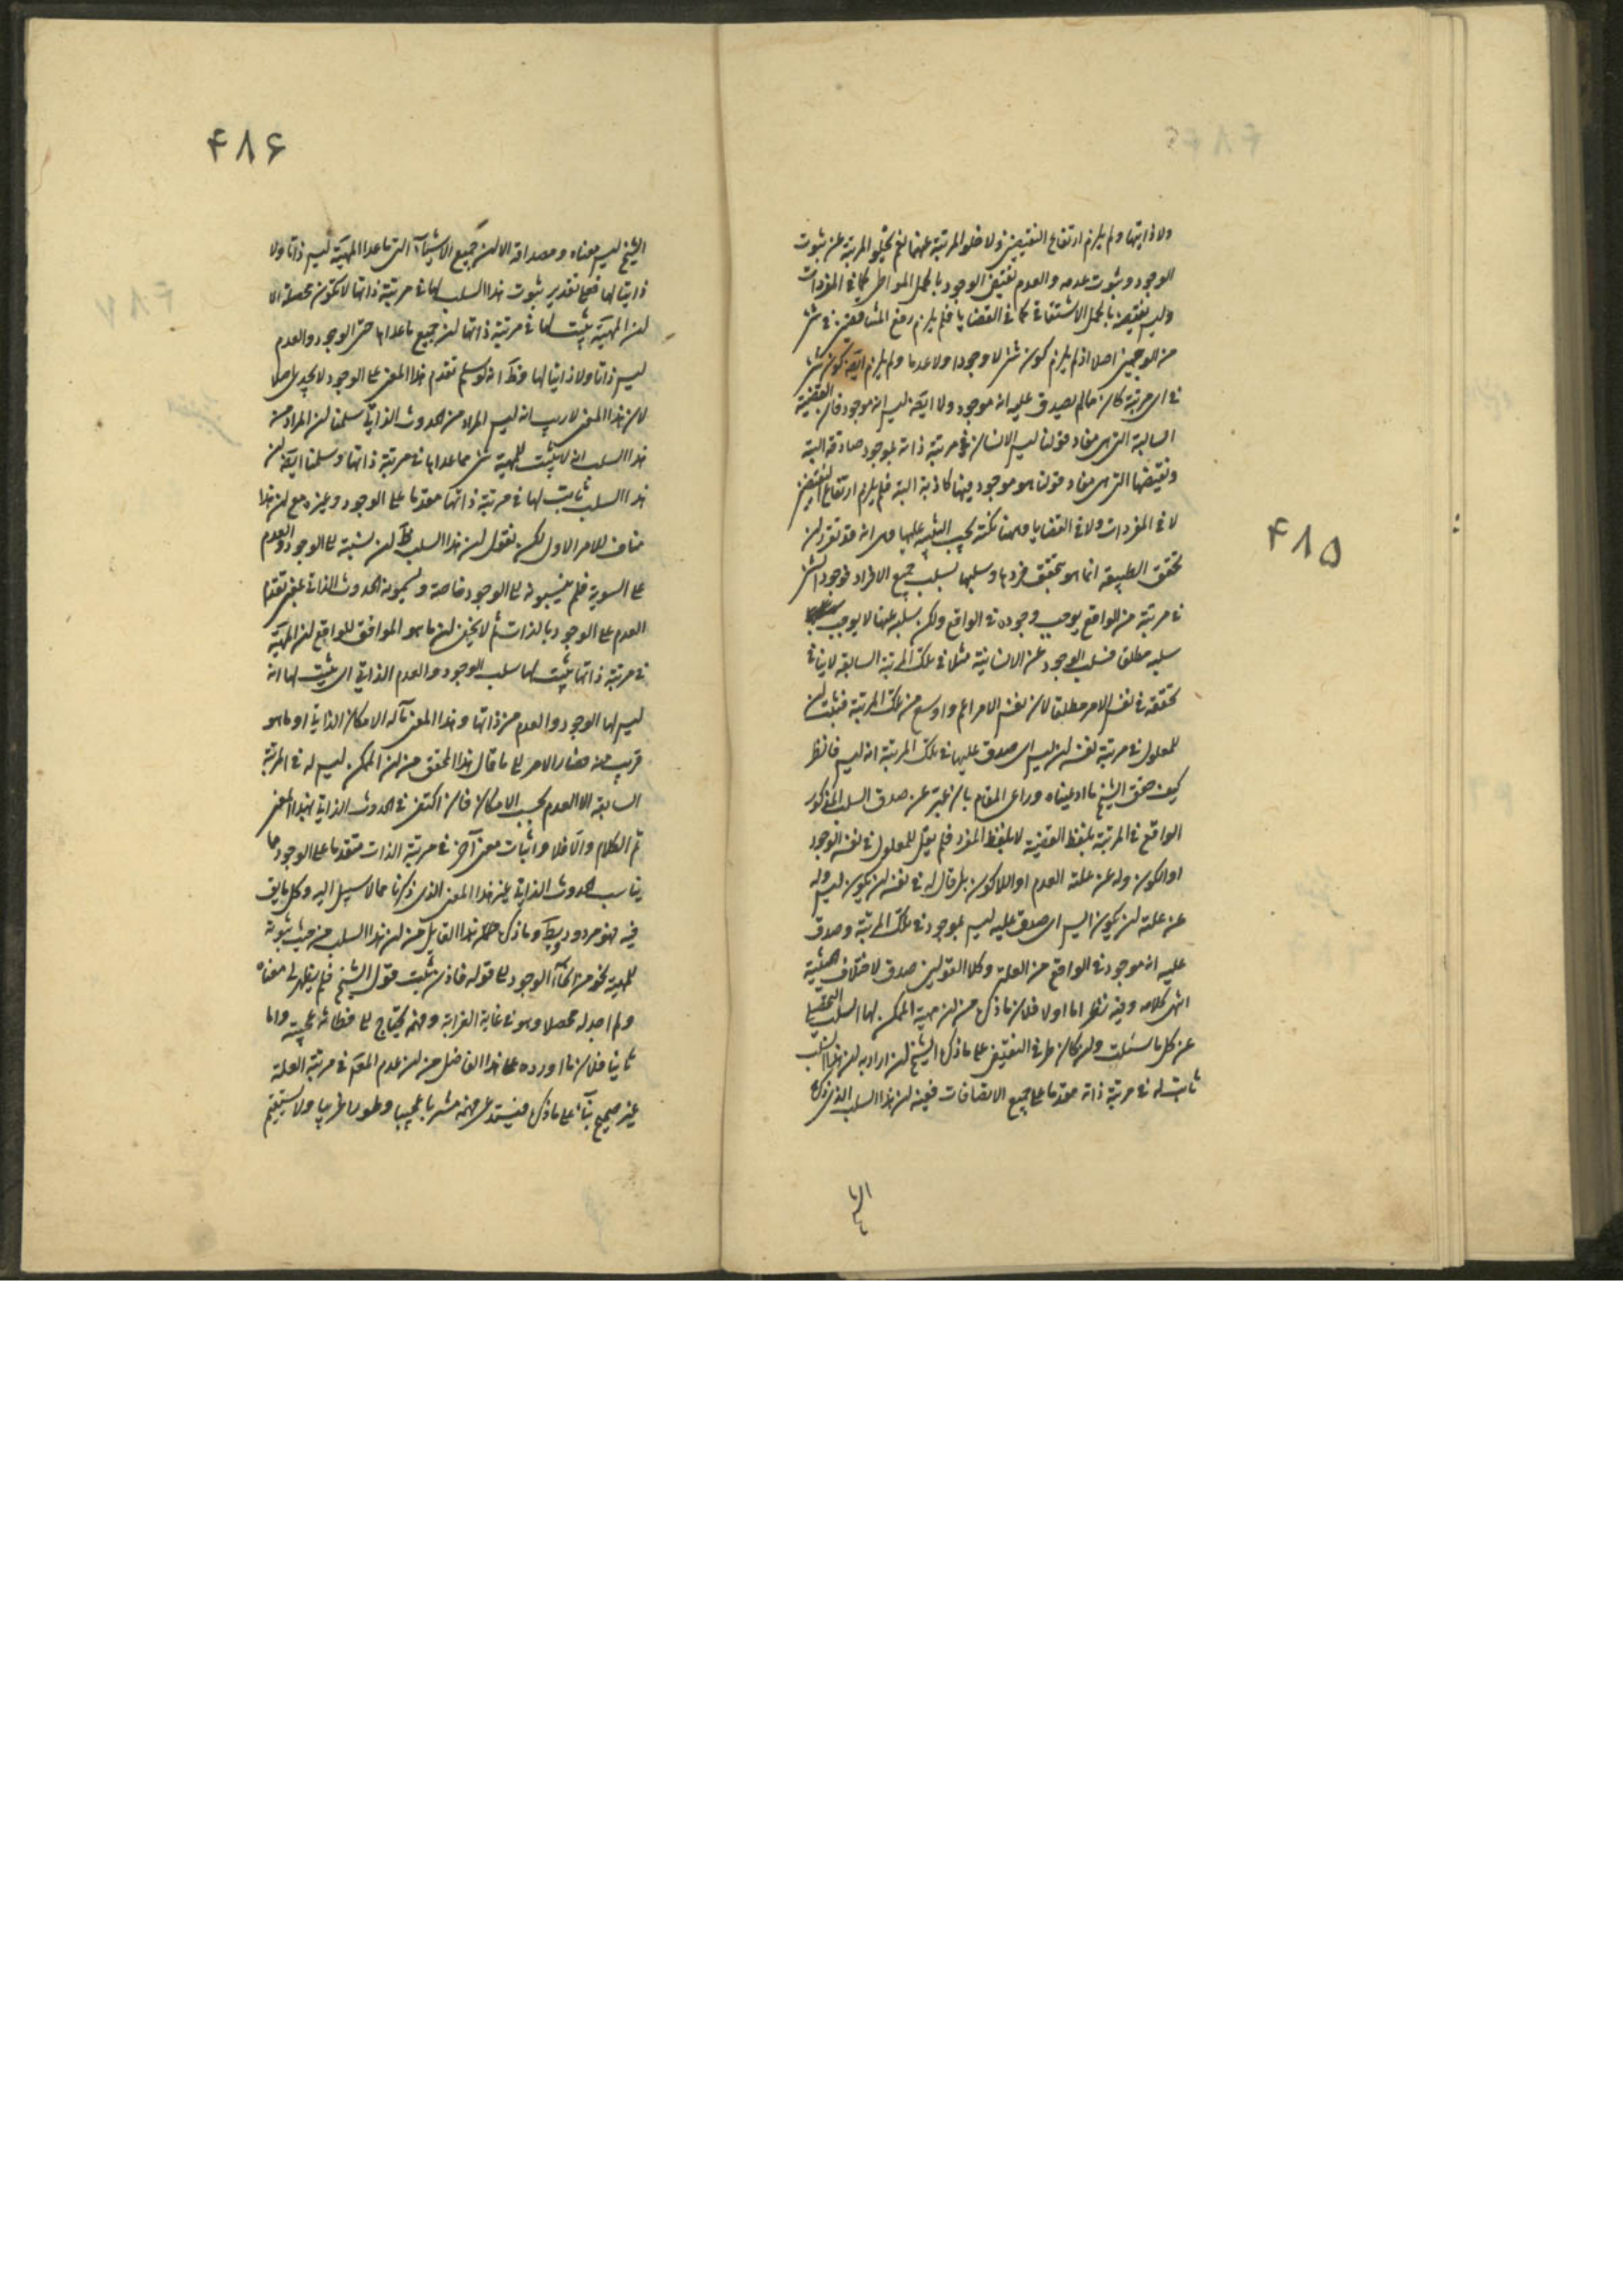 ۴۸۵
ولا ذاتيها ولم يلزم ارتفاع النقيضين ولا خلو المرتبة عنهما نعم يخلو المرتبة عن ثبوت
الوجود وثبوت عدمه والعدم نقيض الوجود بالحمل المواطي كما في المفردات
وليس نقيضه بالحمل الاشتقاقي كما في القضايا فلم يلزم رفع المتناقضين في شئ
من الوجهين اصلا اذ لم يلزم كون شئ لا وجودا ولا عدما ولم يلزم ايضا كون شئ
في اي مرتبة كان مما لم يصدق عليه انه موجود ولا ايضا ليس انه موجود فان القضية
السالبة التي هي مفاد قولنا ليس الانسان في مرتبة ذاته بموجود صادقة البتة
ونقيضها التي هي مفاد قولنا هو موجود فيها كاذبة البتة فلم يلزم ارتفاع النقيضين
لا في المفردات ولا في القضايا وههنا نكتة يجب التنبيه عليها وهي انه قد تقرر ان
تحقق الطبيعة انما هو بتحقق فرد ما وسلبها بسلب جميع الافراد فوجود الشئ
في مرتبة من الواقع يوجب وجوده في الواقع ولكن سلبه عنها لا يوجب
سلبه مطلق فسلب الوجود عن الانسانية مثلا في تلك المرتبة السابقة لا ينافي
تحققه في نفس الامر مطلق لان نفس الامر اعم واوسع من تلك المرتبة فثبت ان
للمعلول في مرتبة نفسه ان ليس اي صدق عليها في تلك المرتبة انه ليس فانظر
كيف حقق الشيخ ما ادعيناه وراعى المقام بان عبر عن صدق السلب المذكور
الواقع في المرتبة بلفظ القضية لا بلفظ المفرد فلم يقل للمعلول في نفسه الوجود
او الكون وله عن علته العدم او اللاكون بل قال له في نفسه ان يكون ليس وله
عن علته ان يكون ايس اي صدق عليه ليس بموجود في تلك المرتبة وصدق
عليه انه موجود في الواقع من العلة وكلا القولين صدق لاختلاف الحيثية
انتهى كلامه وفيه نظر اما اولا فلان ما ذكره من ان مهية الممكن لها السلب التحصيلي
عن كل ما سئلت ولو كان طرفي النقيض على ما ذكره الشيخ ان اراد به ان هذا السلب
ثابت له في مرتبة ذاته مقدما على جميع الاتصافات ففيه ان هذا السلب الذي ذكره
۴۸۶
الشيخ ليس معناه ومصداقه الا ان جميع الاشياء التي ما عدا المهية ليس ذاتا ولا
ذاتيا لها فعلى تقدير ثبوت هذا السلب لها في مرتبة ذاتها لا تكون محصلة الا
ان المهية يثبت لها في مرتبة ذاتها ان جميع ما عداها حتى الوجود والعدم
ليس ذاتا ولا ذاتيا لها وظ انه لو سلم تقدم هذا المعنى على الوجود لا يجدي اصلا
لان هذا المعنى لا ريب انه ليس المراد من الحدوث الذاتي سلمنا ان المراد من
هذا السلب انه لا يثبت للمهية شئ مما عداها في مرتبة ذاتها وسلمنا ايضا ان
هذا السلب ثابت لها في مرتبة ذاتها مقدما على الوجود وغيره مع ان هذا
مناف للامر الاول لكن نقول ان هذا السلب ظ ان نسبته الى الوجود والعدم
على السوية فلم ينسبونه الى الوجود خاصة ويسمونه الحدوث الذاتي بمعنى تقدم
العدم على الوجود بالذات ثم لا يخفى ان ما هو الموافق للواقع ان المهية
في مرتبة ذاتها يثبت لها سلب الوجود والعدم الذاتي اي يثبت لها انه
ليس لها الوجود والعدم من ذاتها وهذا المعنى مآله الامكان الذاتي او ما هو
قريب منه فصار الامر الى ما قال هذا المحقق من ان الممكن ليس له في المرتبة
السابقة الا العدم بحسب الامكان فان اكتفى في الحدوث الذاتي بهذا المعنى
تم الكلام والا فلا واثبات معنى آخر في مرتبة الذات متقدما على الوجود مما
يناسب الحدوث الذاتي غير هذا المعنى الذي ذكرنا مما لا سبيل اليه وكل ما يق
فيه فهو مردود وما ذكره هذا القايل من ان هذا السلب من حيث ثبوته
للمهية نحو من انحاء الوجود الى قوله فاذن يثبت قول الشيخ فلم يظهر لي معناه
ولم اجد له محصلا وهو في غاية الغرابة وفهمه يحتاج الى فطانة عجيبة واما
ثانيا فلان ما اورده على هذا الفاضل من ان عدم المعلول في مرتبة العلة
غير صحيح بناء على ما ذكره فيستدعي فهمه مشربا عجيبا وطورا غريبا ولا يستقيم